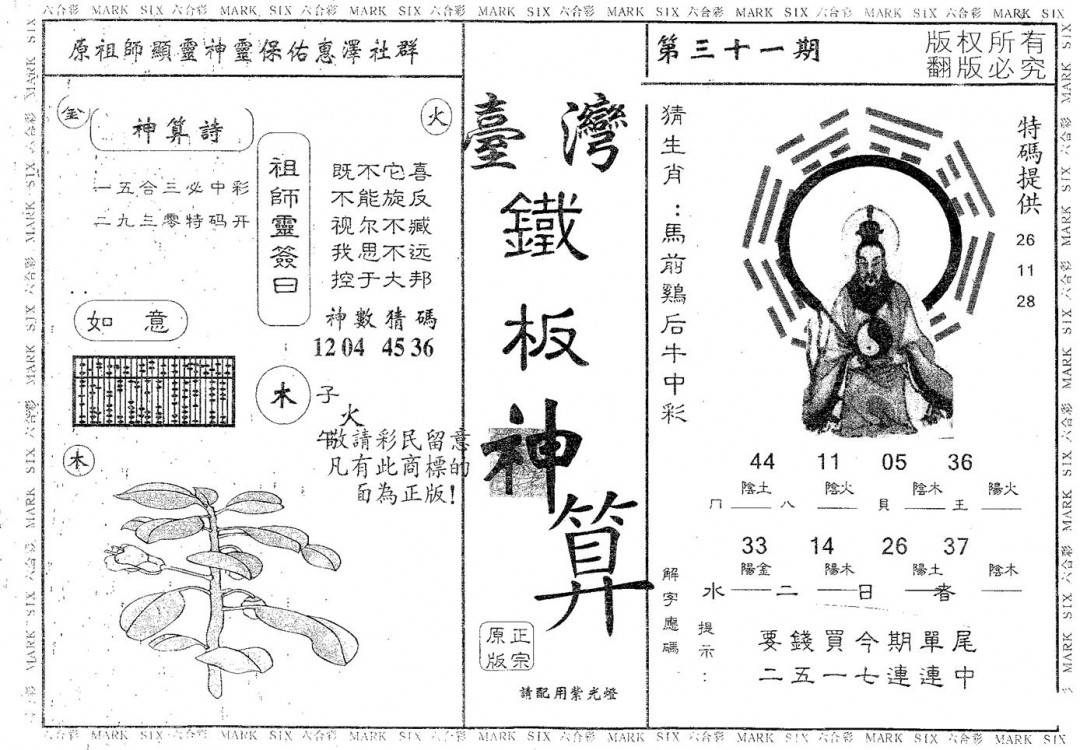 六合彩 MARK SIX 六合彩 MARK SIX 六合彩 MARK SIX 六合彩 MARK SIX 六合彩 MARK SIX 六合彩 MARK SIX 六合彩 MARK SIX 六合彩 MARK SIX
原祖師顯靈神靈保佑惠澤社群
金
神算詩
火
一五合三必中彩
二九三零特码开
祖師靈簽曰
既不它喜
不能旋反
视尔不臧
我思不远
控于大邦
神數猜碼
:
12 04 45 36
如意
木
子
火
午
敬請彩民留意
凡有此商標的
面為正版!
木
臺灣
鐵
板
神
算
正宗
原版
請配用紫光燈
第三十一期
版权所有
翻版必究
猜生肖:馬前鷄后牛中彩
特碼提供
26
11
28
44 11 05 36
陰土 陰火 陰木 陽火
八 貝 王
33 14 26 37
陽金 陽木 陽土 陰木
水 二 日 春
解字應碼
提示:
要錢買今期單尾
二五一七連連中
六合彩 MARK SIX 六合彩 MARK SIX 六合彩 MARK SIX 六合彩 MARK SIX 六合彩 MARK SIX 六合彩 MARK SIX 六合彩 MARK SIX 六合彩 MARK SIX